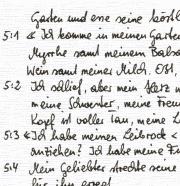 Garten und esse seine köstl
5:1 « Ich komme in meinen Garten
Myrrhe samt meinem Balsa
Wein samt meiner Milch. Eßt,
5:2 Ich schlief, aber mein Herz w
meine Schwester, meine Freun
Kopf ist voller Tau, meine L
5:3 «Ich habe meinen Leibrock «
anziehen? Ich habe meine Fü
5:4 Mein Geliebter streckte seine
für ihn erregt